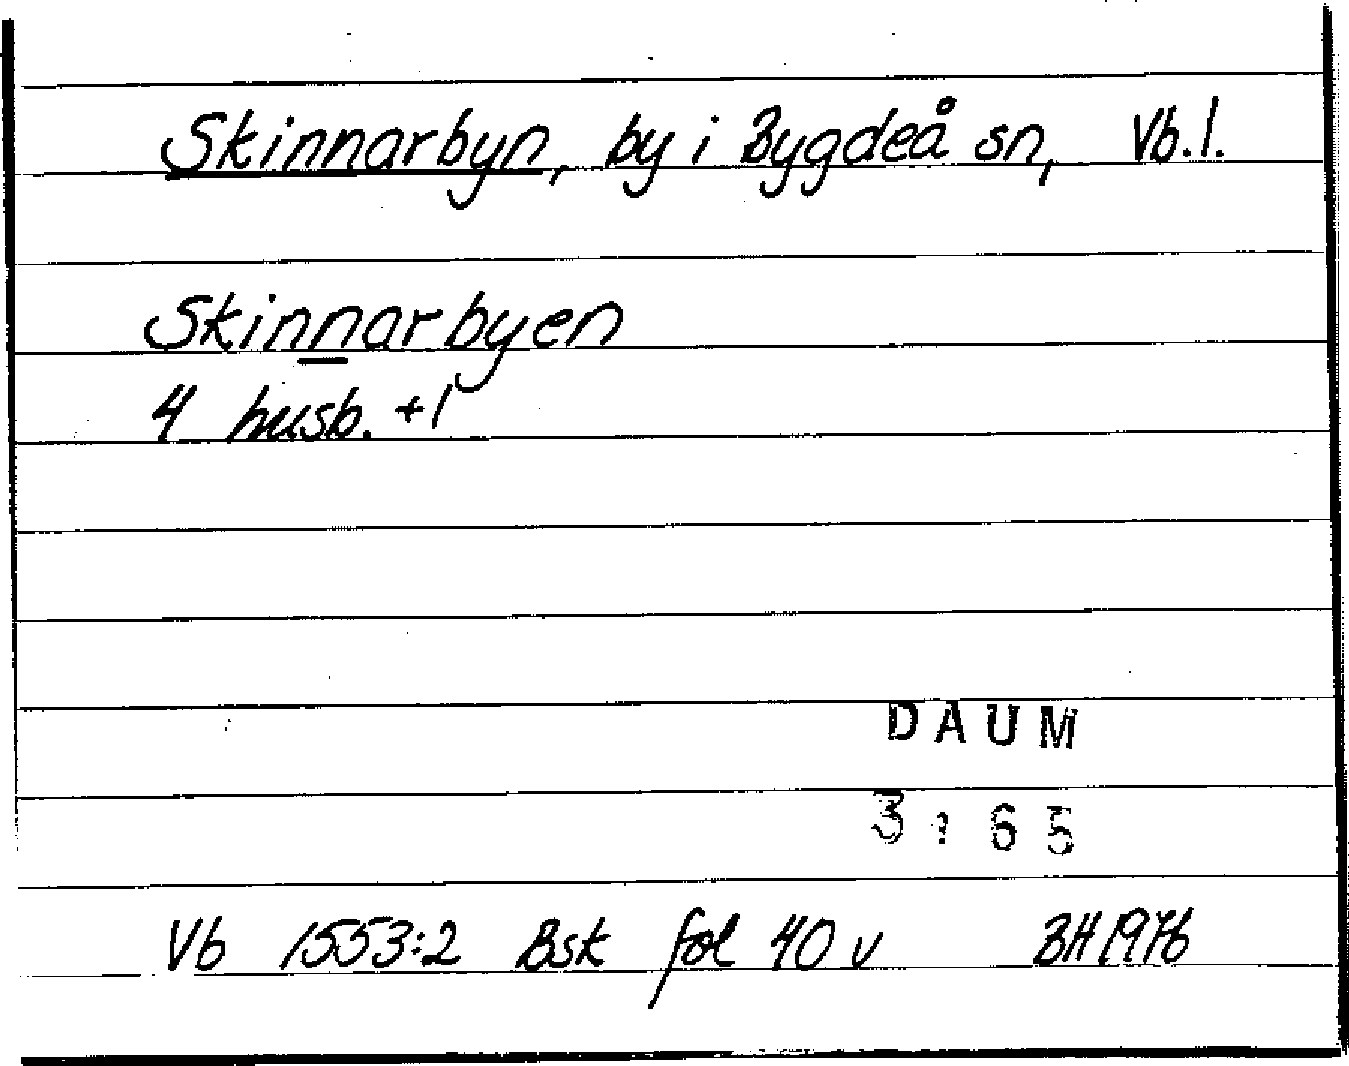 Skinnarbyn, by i Bygdeå sn, Vb.l.
Skinnarbyen
4 husb. +1
DAUM
3:65
Vb 1553:2 Bsk fol 40 v BH 1976